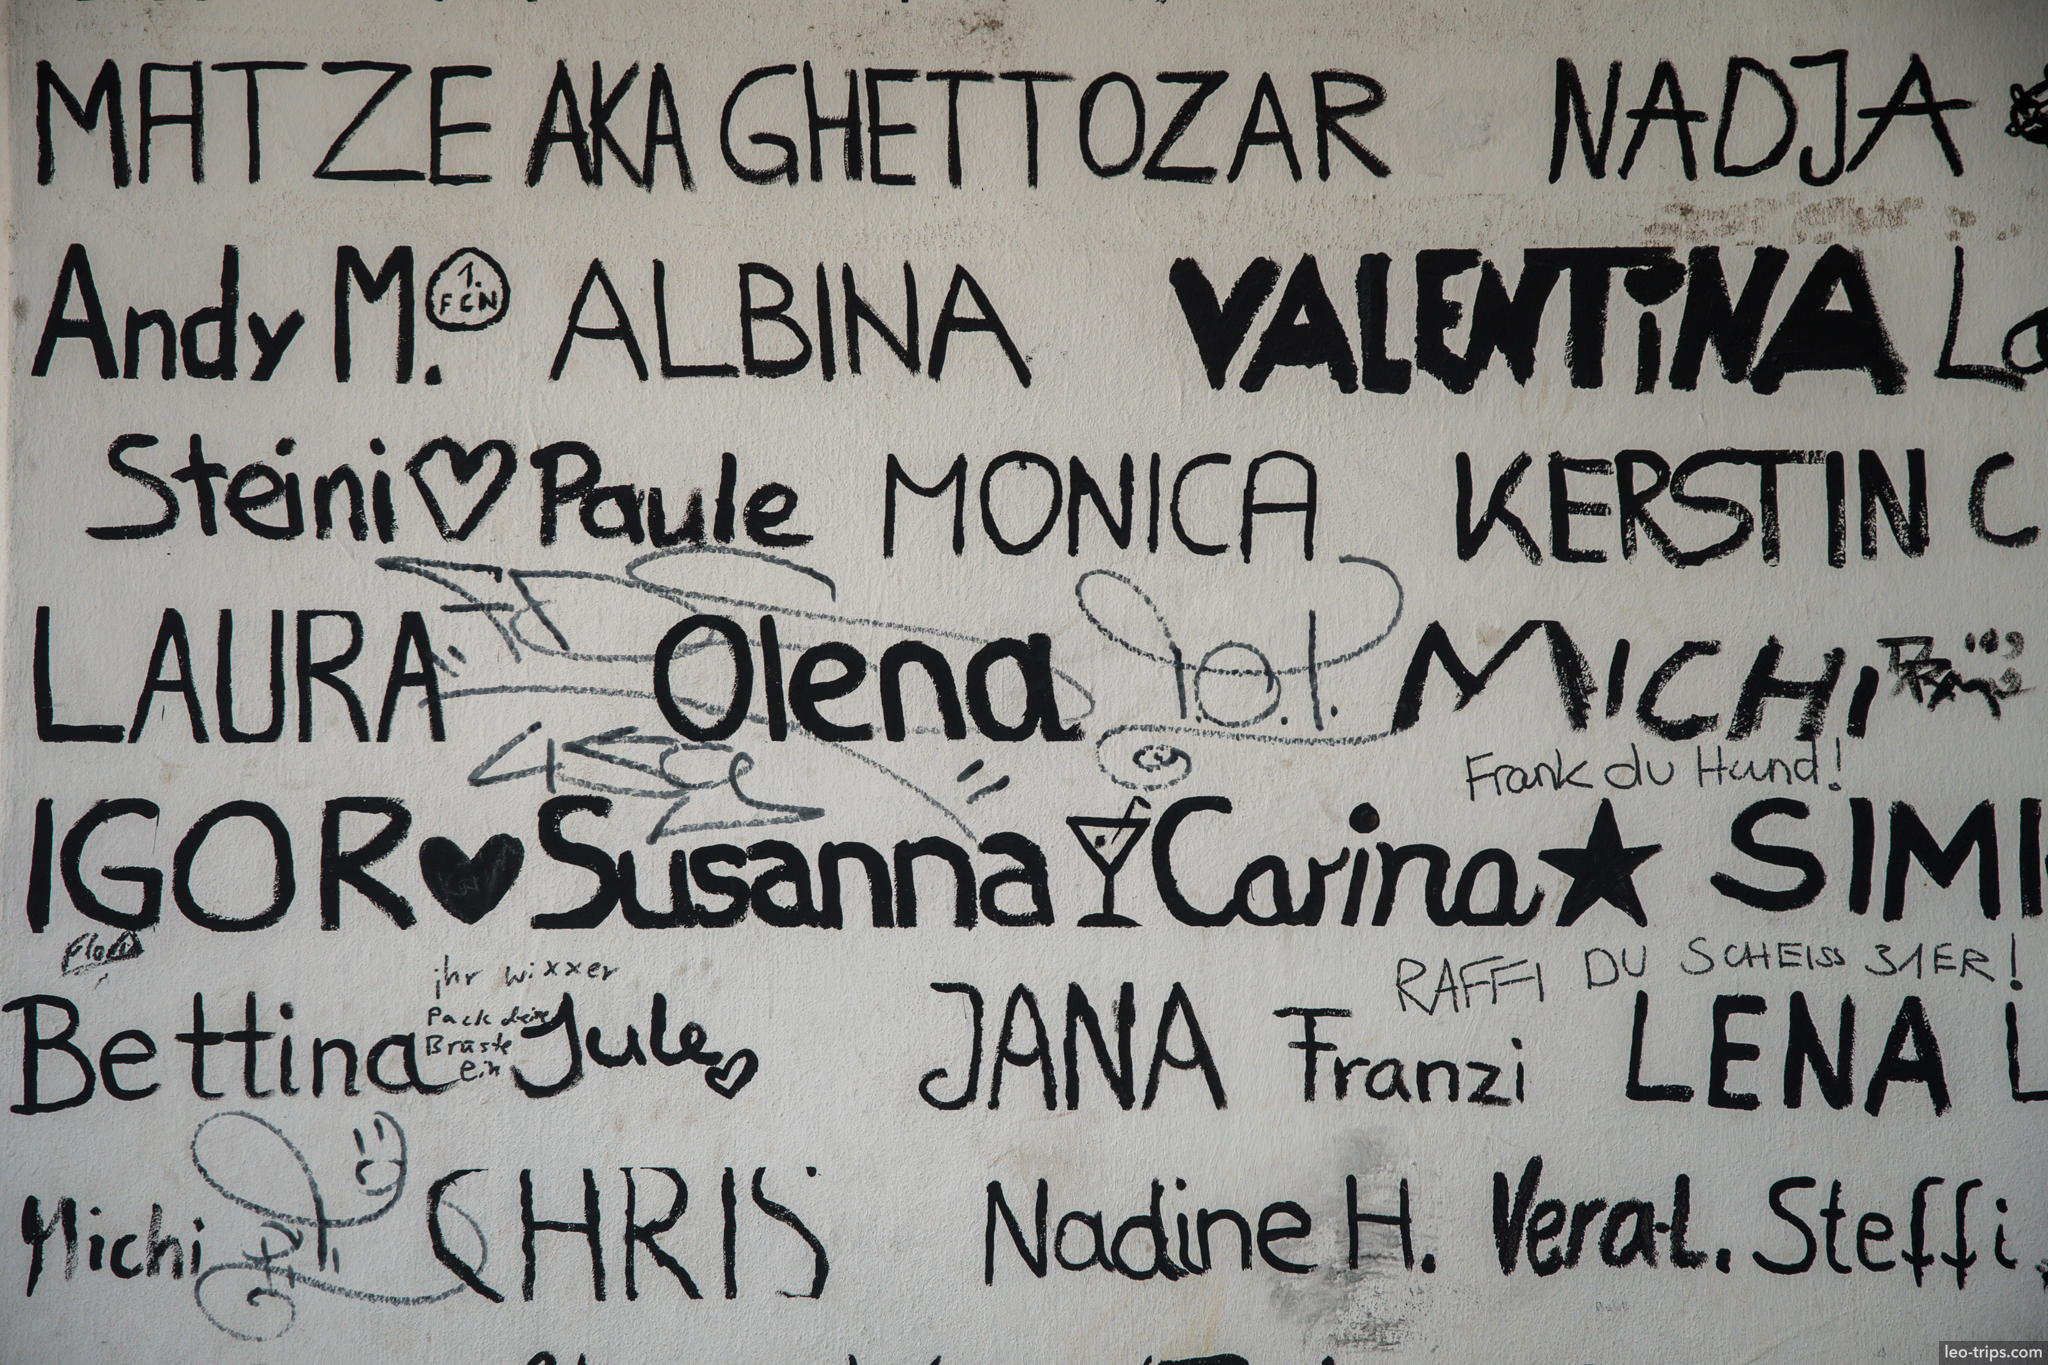 MATZE AKA GHETTOZAR NADJA
Andy M. 1. FCN ALBINA VALENTiNA
Steini Paule MONICA KERSTIN
LAURA Olena MICHI
Frank du Hund!
IGOR Susanna Carina SIMI
RAFFI DU SCHEISS 31ER!
ihr wixxer
Pack deine
Brüste
ein
Bettina Jule JANA Franzi LENA
Michi CHRIS Nadine H. Vera L. Steffi
leo-trips.com